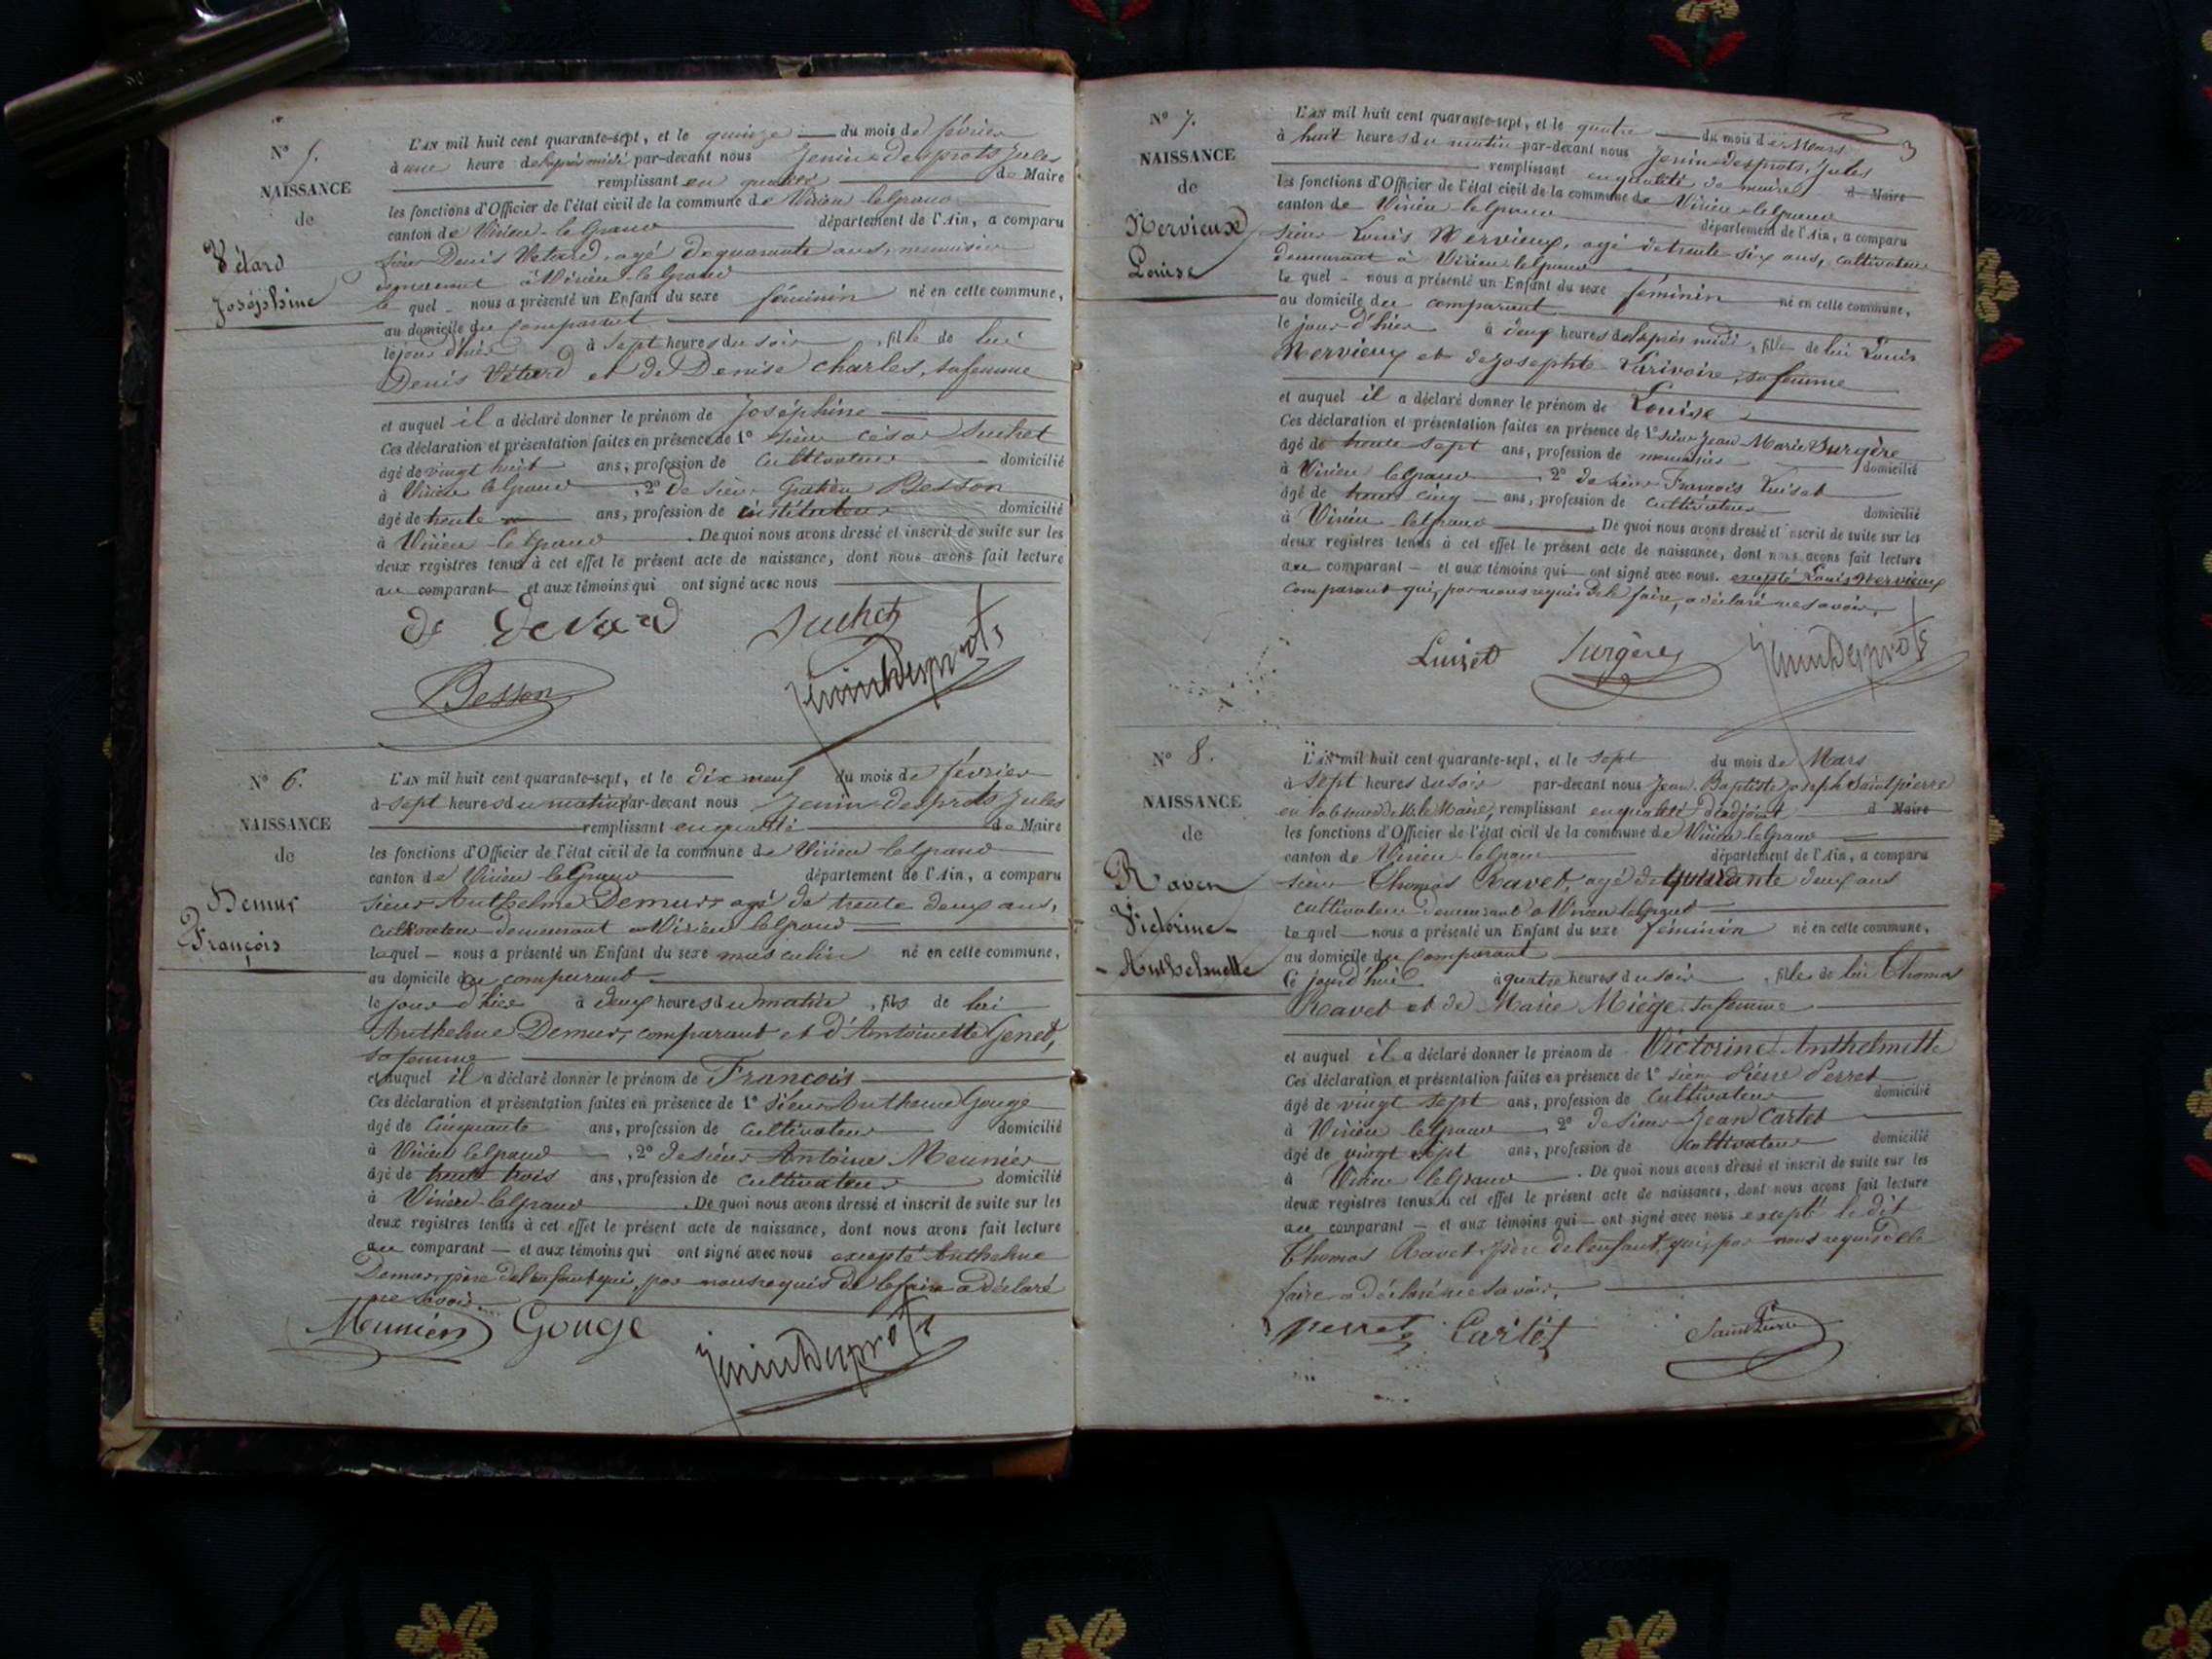 N° 5.
NAISSANCE
de
Vétard
Joséphine
L'AN mil huit cent quarante-sept, et le quinze du mois de février
à une heure de l'après midi par-devant nous Jenin-desprots Jules
remplissant en qualité de Maire
les fonctions d'Officier de l'état civil de la commune de Virieu le Grand
canton de Virieu-le Grand département de l'Ain, a comparu
sieur Denis Vetard, agé de quarante ans, menuisier
demeurant à Virieu-le Grand
le quel nous a présenté un Enfant du sexe féminin né en cette commune,
au domicile du comparant
le jour d'hier à sept heures du soir, fille de lui
Denis Vétard et de Denise Charles, sa femme
et auquel il a déclaré donner le prénom de Joséphine
Ces déclaration et présentation faites en présence de 1° sieur César Suchet
âgé de vingt huit ans, profession de Cultivateur domicilié
à Virieu le Grand, 2° de sieur Besson
âgé de trente ans, profession de instituteur domicilié
à Virieu-le Grand. De quoi nous avons dressé et inscrit de suite sur les
deux registres tenus à cet effet le présent acte de naissance, dont nous avons fait lecture
au comparant et aux témoins qui ont signé avec nous
de Devard Suchet
Besson JeninDesprots
N° 6.
NAISSANCE
de
Demur
François
L'AN mil huit cent quarante-sept, et le dix neuf du mois de février
à sept heures du matin par-devant nous Jenin-desprots Jules
remplissant en qualité de Maire
les fonctions d'Officier de l'état civil de la commune de Virieu-le Grand
canton de Virieu-le Grand département de l'Ain, a comparu
sieur Anthelme Demur, agé de trente deux ans,
cultivateur demeurant à Virieu le Grand
lequel nous a présenté un Enfant du sexe masculin né en cette commune,
au domicile du comparant
le jour d'hier à deux heures du matin, fils de lui
Anthelme Demur, comparant et d'Antoinette Genet,
sa femme
et auquel il a déclaré donner le prénom de François
Ces déclaration et présentation faites en présence de 1° sieur Anthelme Gouge
âgé de Cinquante ans, profession de Cultivateur domicilié
à Virieu le Grand, 2° de sieur Antoine Meunier
âgé de trente trois ans, profession de cultivateur domicilié
à Virieu-le Grand. De quoi nous avons dressé et inscrit de suite sur les
deux registres tenus à cet effet le présent acte de naissance, dont nous avons fait lecture
au comparant et aux témoins qui ont signé avec nous excepté Anthelme
Demur, père de l'enfant qui, par nous requis de le faire a déclaré
ne savoir.
Meunier Gouge JeninDesprots
3
N° 7.
NAISSANCE
de
Nervieux
Louise
L'AN mil huit cent quarante-sept, et le quatre du mois de Mars
à huit heures du matin par-devant nous Jenin-desprots, Jules
remplissant en qualité de maire d Maire
les fonctions d'Officier de l'état civil de la commune de Virieu-le Grand
canton de Virieu-le Grand département de l'Ain, a comparu
sieur Louis Nervieux, agé de trente-six ans, cultivateur
demeurant à Virieu-le Grand
le quel nous a présenté un Enfant du sexe féminin né en cette commune,
au domicile du comparant
le jour d'hier à deux heures de l'après midi, fille de lui Louis
Nervieux et de Josephte Larivoire, sa femme
et auquel il a déclaré donner le prénom de Louise
Ces déclaration et présentation faites en présence de 1° sieur Jean-Marie Surgère
âgé de trente sept ans, profession de menuisier domicilié
à Virieu le Grand, 2° de sieur François Luiset
âgé de trente cinq ans, profession de Cultivateur domicilié
à Virieu le Grand. De quoi nous avons dressé et inscrit de suite sur les
deux registres tenus à cet effet le présent acte de naissance, dont nous avons fait lecture
au comparant et aux témoins qui ont signé avec nous. excepté Louis Nervieux
comparant qui, par nous requis de le faire, a déclaré ne savoir.
Luizet Surgère JeninDesprots
N° 8.
NAISSANCE
de
Ravet
Victorine-
- Anthelmette
L'AN mil huit cent quarante-sept, et le sept du mois de Mars
à sept heures du soir par-devant nous Jean-Baptiste Joseph Saintpierre
en l'absence de M. le Maire, remplissant en qualité d'adjoint d Maire
les fonctions d'Officier de l'état civil de la commune de Virieu le Grand
canton de Virieu-le Grand département de l'Ain, a comparu
sieur Thomas Ravet, agé de quarante deux ans
cultivateur demeurant à Virieu le Grand
le quel nous a présenté un Enfant du sexe féminin né en cette commune,
au domicile du comparant
Ce jourd'hui à quatre heures du soir, fille de lui Thomas
Ravet et de Marie Miège sa femme
et auquel il a déclaré donner le prénom de Victorine Anthelmette
Ces déclaration et présentation faites en présence de 1° sieur Pierre Perret
âgé de vingt sept ans, profession de Cultivateur domicilié
à Virieu le Grand, 2° de sieur Jean Cartet
âgé de vingt sept ans, profession de Cultivateur domicilié
à Virieu le Grand. De quoi nous avons dressé et inscrit de suite sur les
deux registres tenus à cet effet le présent acte de naissance, dont nous avons fait lecture
au comparant et aux témoins qui ont signé avec nous excepté le dit
Thomas Ravet, père de l'enfant, qui, par nous requis de le
faire a déclaré ne savoir,
perret Cartet SaintPierre